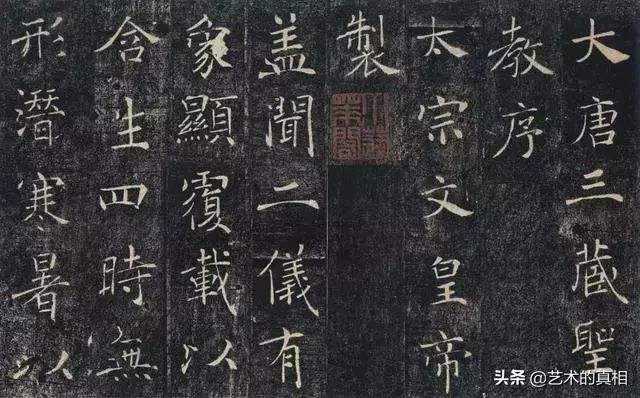 大唐三藏聖
教序
太宗文皇帝
製
盖聞二儀有
象顯覆載以
含生四時無
形潛寒暑以
头条 @艺术的真相